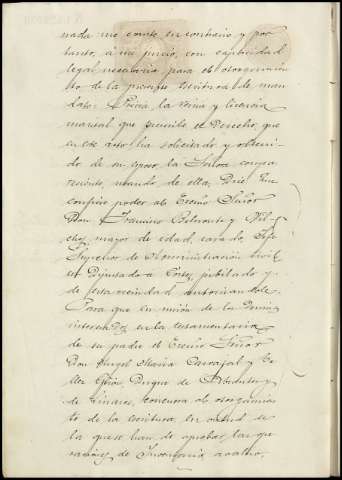 nada me consta en contrario, y por
tanto, á mi juicio, con capacidad
legal necesaria para el otorgamien
to de la presente escritura de man
dato: Previa la venia y licencia
marital que prescribe el Derecho, que
en este acto ha solicitado y obteni-
do de su esposo la Señora compa
reciente, usando de ella, Dice: Que
confiere poder al Excmo Señor
Don Francisco Belmonte y Vil-
ches, mayor de edad, casado, Jefe
Superior de Administración civil
ex Diputado a Cortes, jubilado y
de esta vecindad autorizandole.
Para que en unión de la
interesados en la testamentaria
de su padre el Excmo Señor
Don Angel Maria Carvajal y Te
llez Girón, Duque de Abrantes y
de Linares, concurra al otorgamien
to de la escritura, en virtud de
la que se han de aprobar, las ope
raciones de Inventario avaluo,